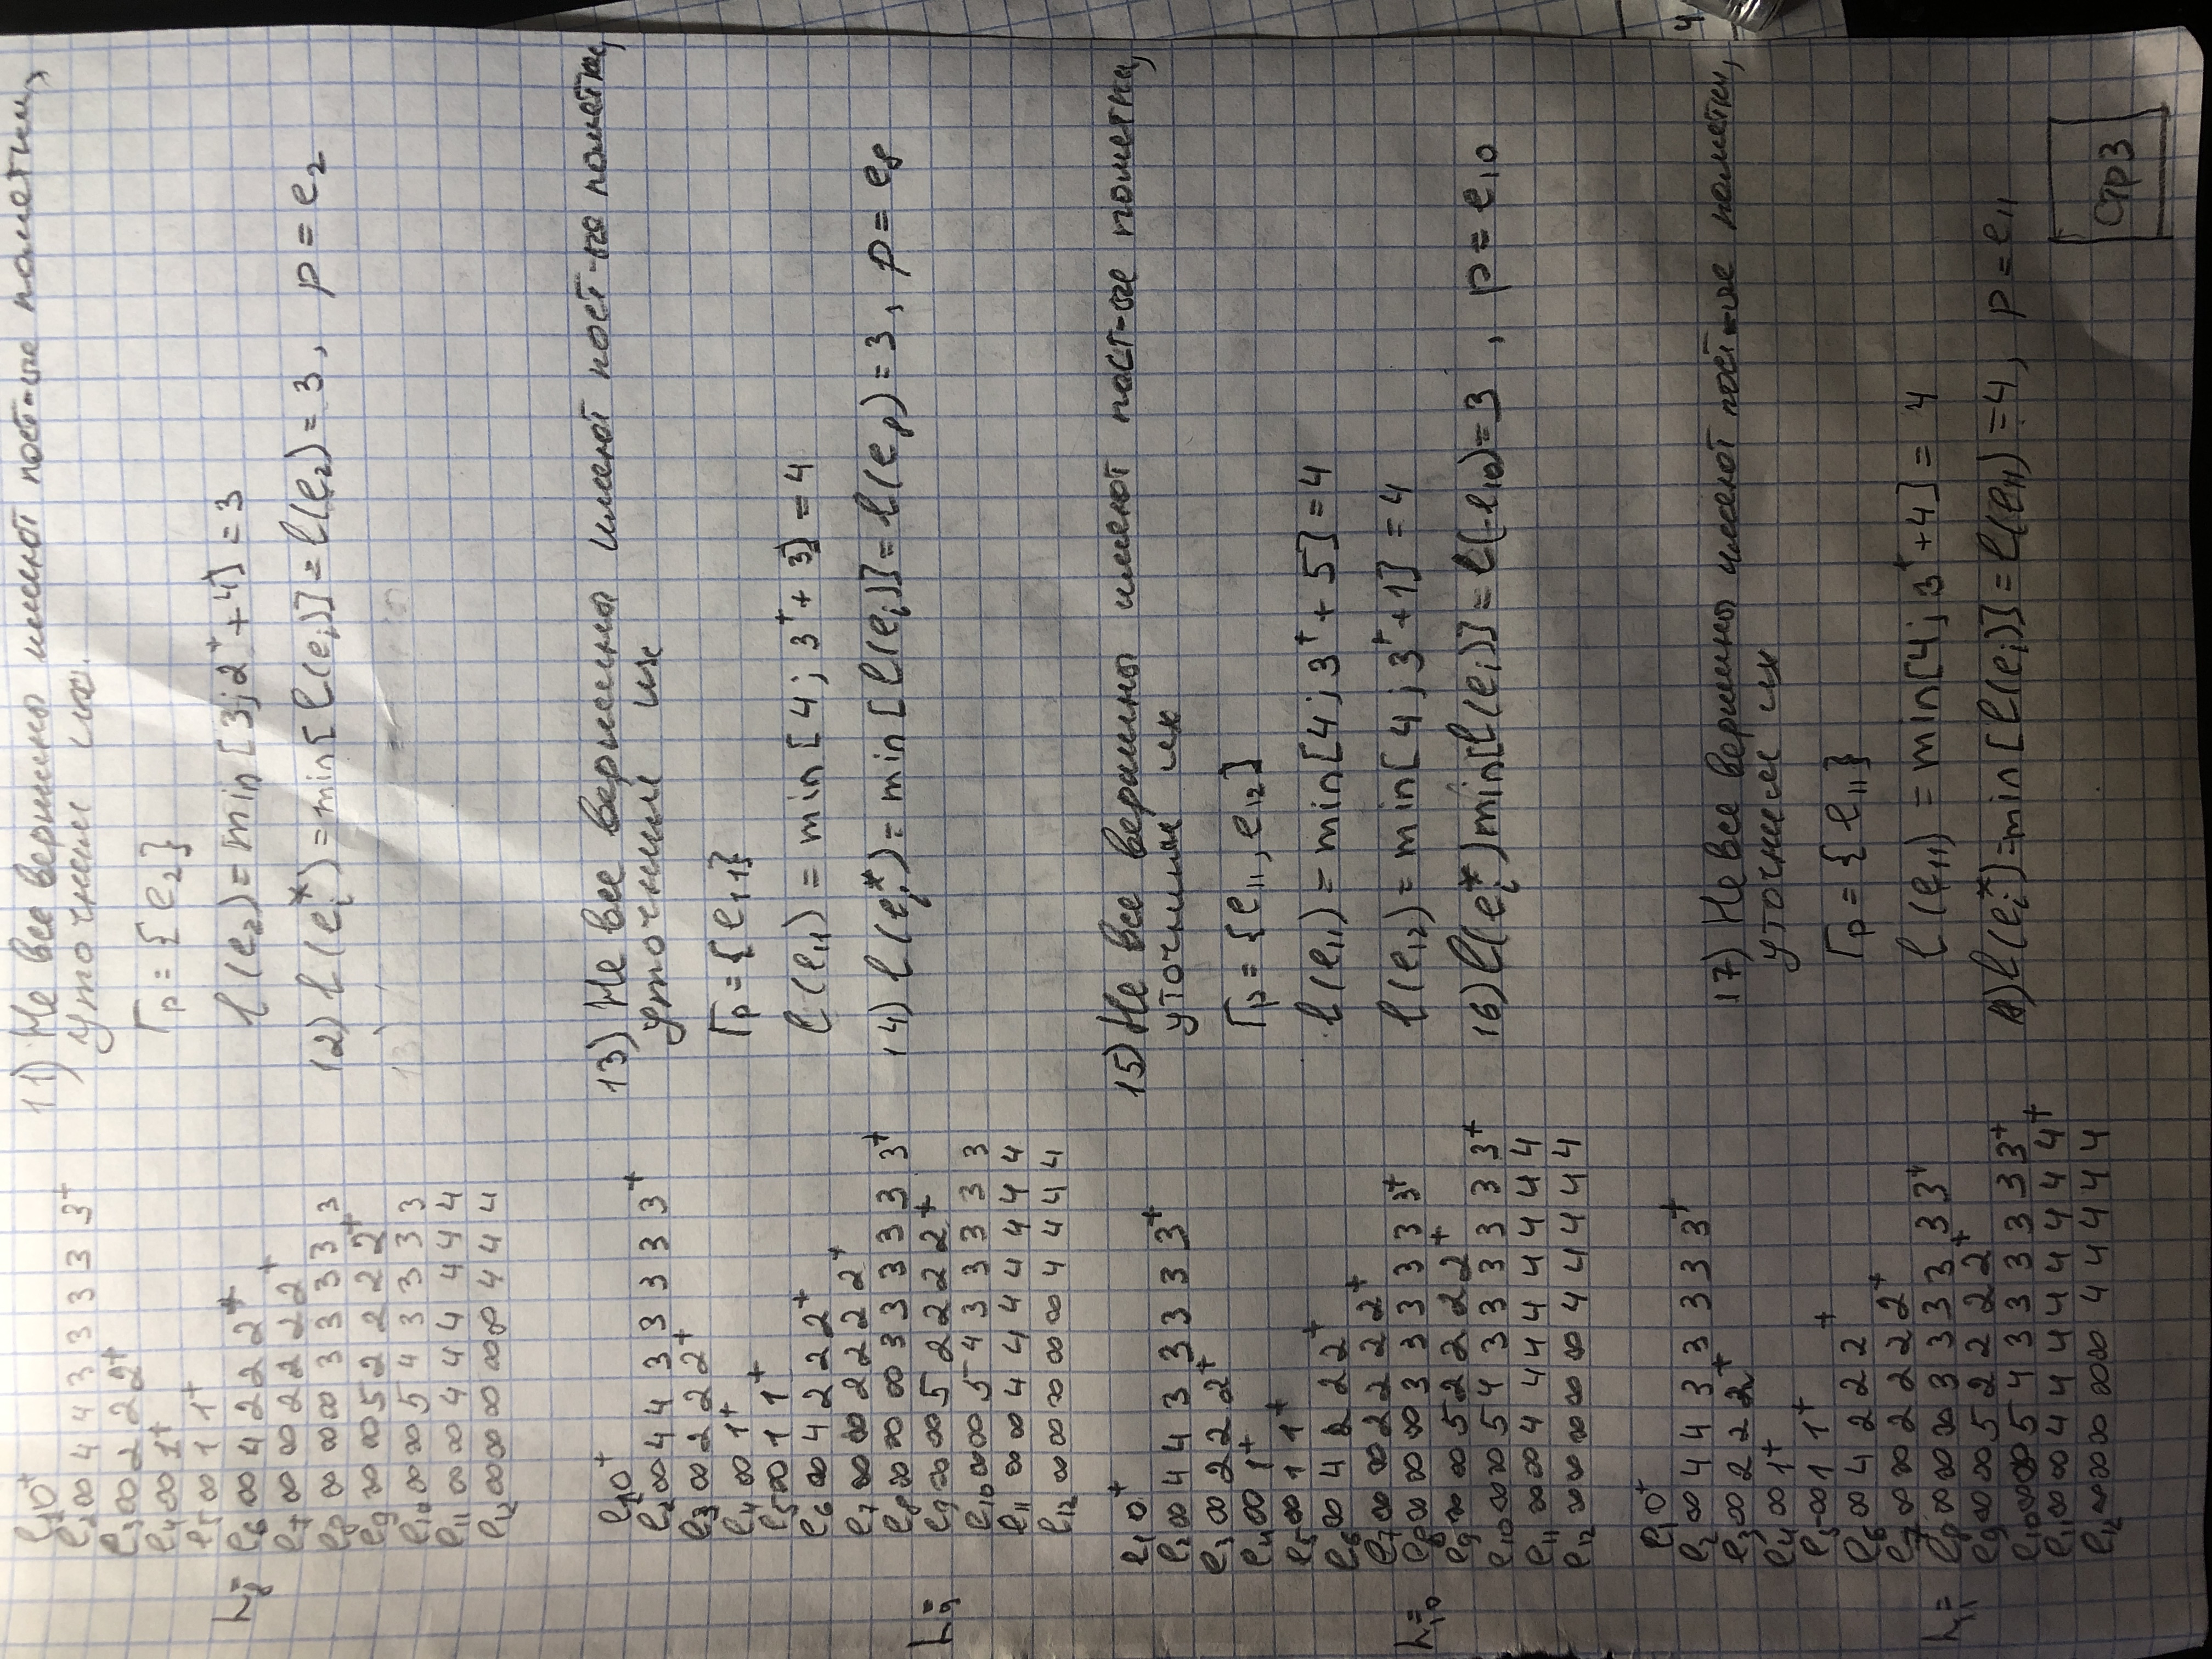 e₁ 0⁺
e₂ ∞ 4 4 3 3 3 3 3⁺
e₃ ∞ 2 2 2⁺
e₄ ∞ 1⁺
e₅ ∞ 1 1⁺
L₈= e₆ ∞ 4 2 2 2⁺
e₇ ∞ ∞ 2 2 2 2⁺
e₈ ∞ ∞ ∞ 3 3 3 3 3
e₉ ∞ ∞ 5 2 2 2 2⁺
e₁₀ ∞ ∞ 5 4 3 3 3 3
e₁₁ ∞ ∞ 4 4 4 4 4 4
e₁₂ ∞ ∞ ∞ ∞ ∞ 4 4 4
11) Не все вершины имеют пост-ые пометки,
уточним их.
Гр = {e₂}
l(e₂) = min [3; 2⁺ + 4] = 3
12) l(eᵢ*) = min[l(eᵢ)] = l(e₂) = 3, p = e₂
e₁ 0⁺
e₂ ∞ 4 4 3 3 3 3 3⁺
e₃ ∞ 2 2 2⁺
e₄ ∞ 1⁺
e₅ ∞ 1 1⁺
e₆ ∞ 4 2 2 2⁺
e₇ ∞ ∞ 2 2 2 2⁺
e₈ ∞ ∞ ∞ 3 3 3 3 3 3⁺
L₉= e₉ ∞ ∞ 5 2 2 2 2⁺
e₁₀ ∞ ∞ 5 4 3 3 3 3 3
e₁₁ ∞ ∞ 4 4 4 4 4 4 4
e₁₂ ∞ ∞ ∞ ∞ ∞ 4 4 4 4
13) Не все вершины имеют пост-ые пометки,
уточним их
Гр = {e₁₁}
l(e₁₁) = min [4; 3⁺ + 3] = 4
14) l(eᵢ*) = min [l(eᵢ)] = l(e₈) = 3, p = e₈
e₁ 0⁺
e₂ ∞ 4 4 3 3 3 3 3⁺
e₃ ∞ 2 2 2⁺
e₄ ∞ 1⁺
e₅ ∞ 1 1⁺
e₆ ∞ 4 2 2 2⁺
e₇ ∞ ∞ 2 2 2 2⁺
L₁₀= e₈ ∞ ∞ ∞ 3 3 3 3 3 3⁺
e₉ ∞ ∞ 5 2 2 2 2⁺
e₁₀ ∞ ∞ 5 4 3 3 3 3 3 3⁺
e₁₁ ∞ ∞ 4 4 4 4 4 4 4 4
e₁₂ ∞ ∞ ∞ ∞ ∞ 4 4 4 4 4
15) Не все вершины имеют пост-ые пометки,
уточним их
Гр = {e₁₁, e₁₂}
l(e₁₁) = min [4; 3⁺ + 5] = 4
l(e₁₂) = min [4; 3⁺ + 1] = 4
16) l(eᵢ*) min[l(eᵢ)] = l(e₁₀) = 3, p = e₁₀
e₁ 0⁺
e₂ ∞ 4 4 3 3 3 3 3⁺
e₃ ∞ 2 2 2⁺
e₄ ∞ 1⁺
e₅ ∞ 1 1⁺
e₆ ∞ 4 2 2 2⁺
e₇ ∞ ∞ 2 2 2 2⁺
L₁₁= e₈ ∞ ∞ ∞ 3 3 3 3 3 3⁺
e₉ ∞ ∞ 5 2 2 2 2⁺
e₁₀ ∞ ∞ 5 4 3 3 3 3 3 3⁺
e₁₁ ∞ ∞ 4 4 4 4 4 4 4 4⁺
e₁₂ ∞ ∞ ∞ ∞ ∞ 4 4 4 4 4
17) Не все вершины имеют пост-ые пометки,
уточним их
Гр = {e₁₁}
l(e₁₁) = min[4; 3⁺ + 4] = 4
l(eᵢ*) = min [l(eᵢ)] = l(e₁₁) = 4, p = e₁₁
Стр 3